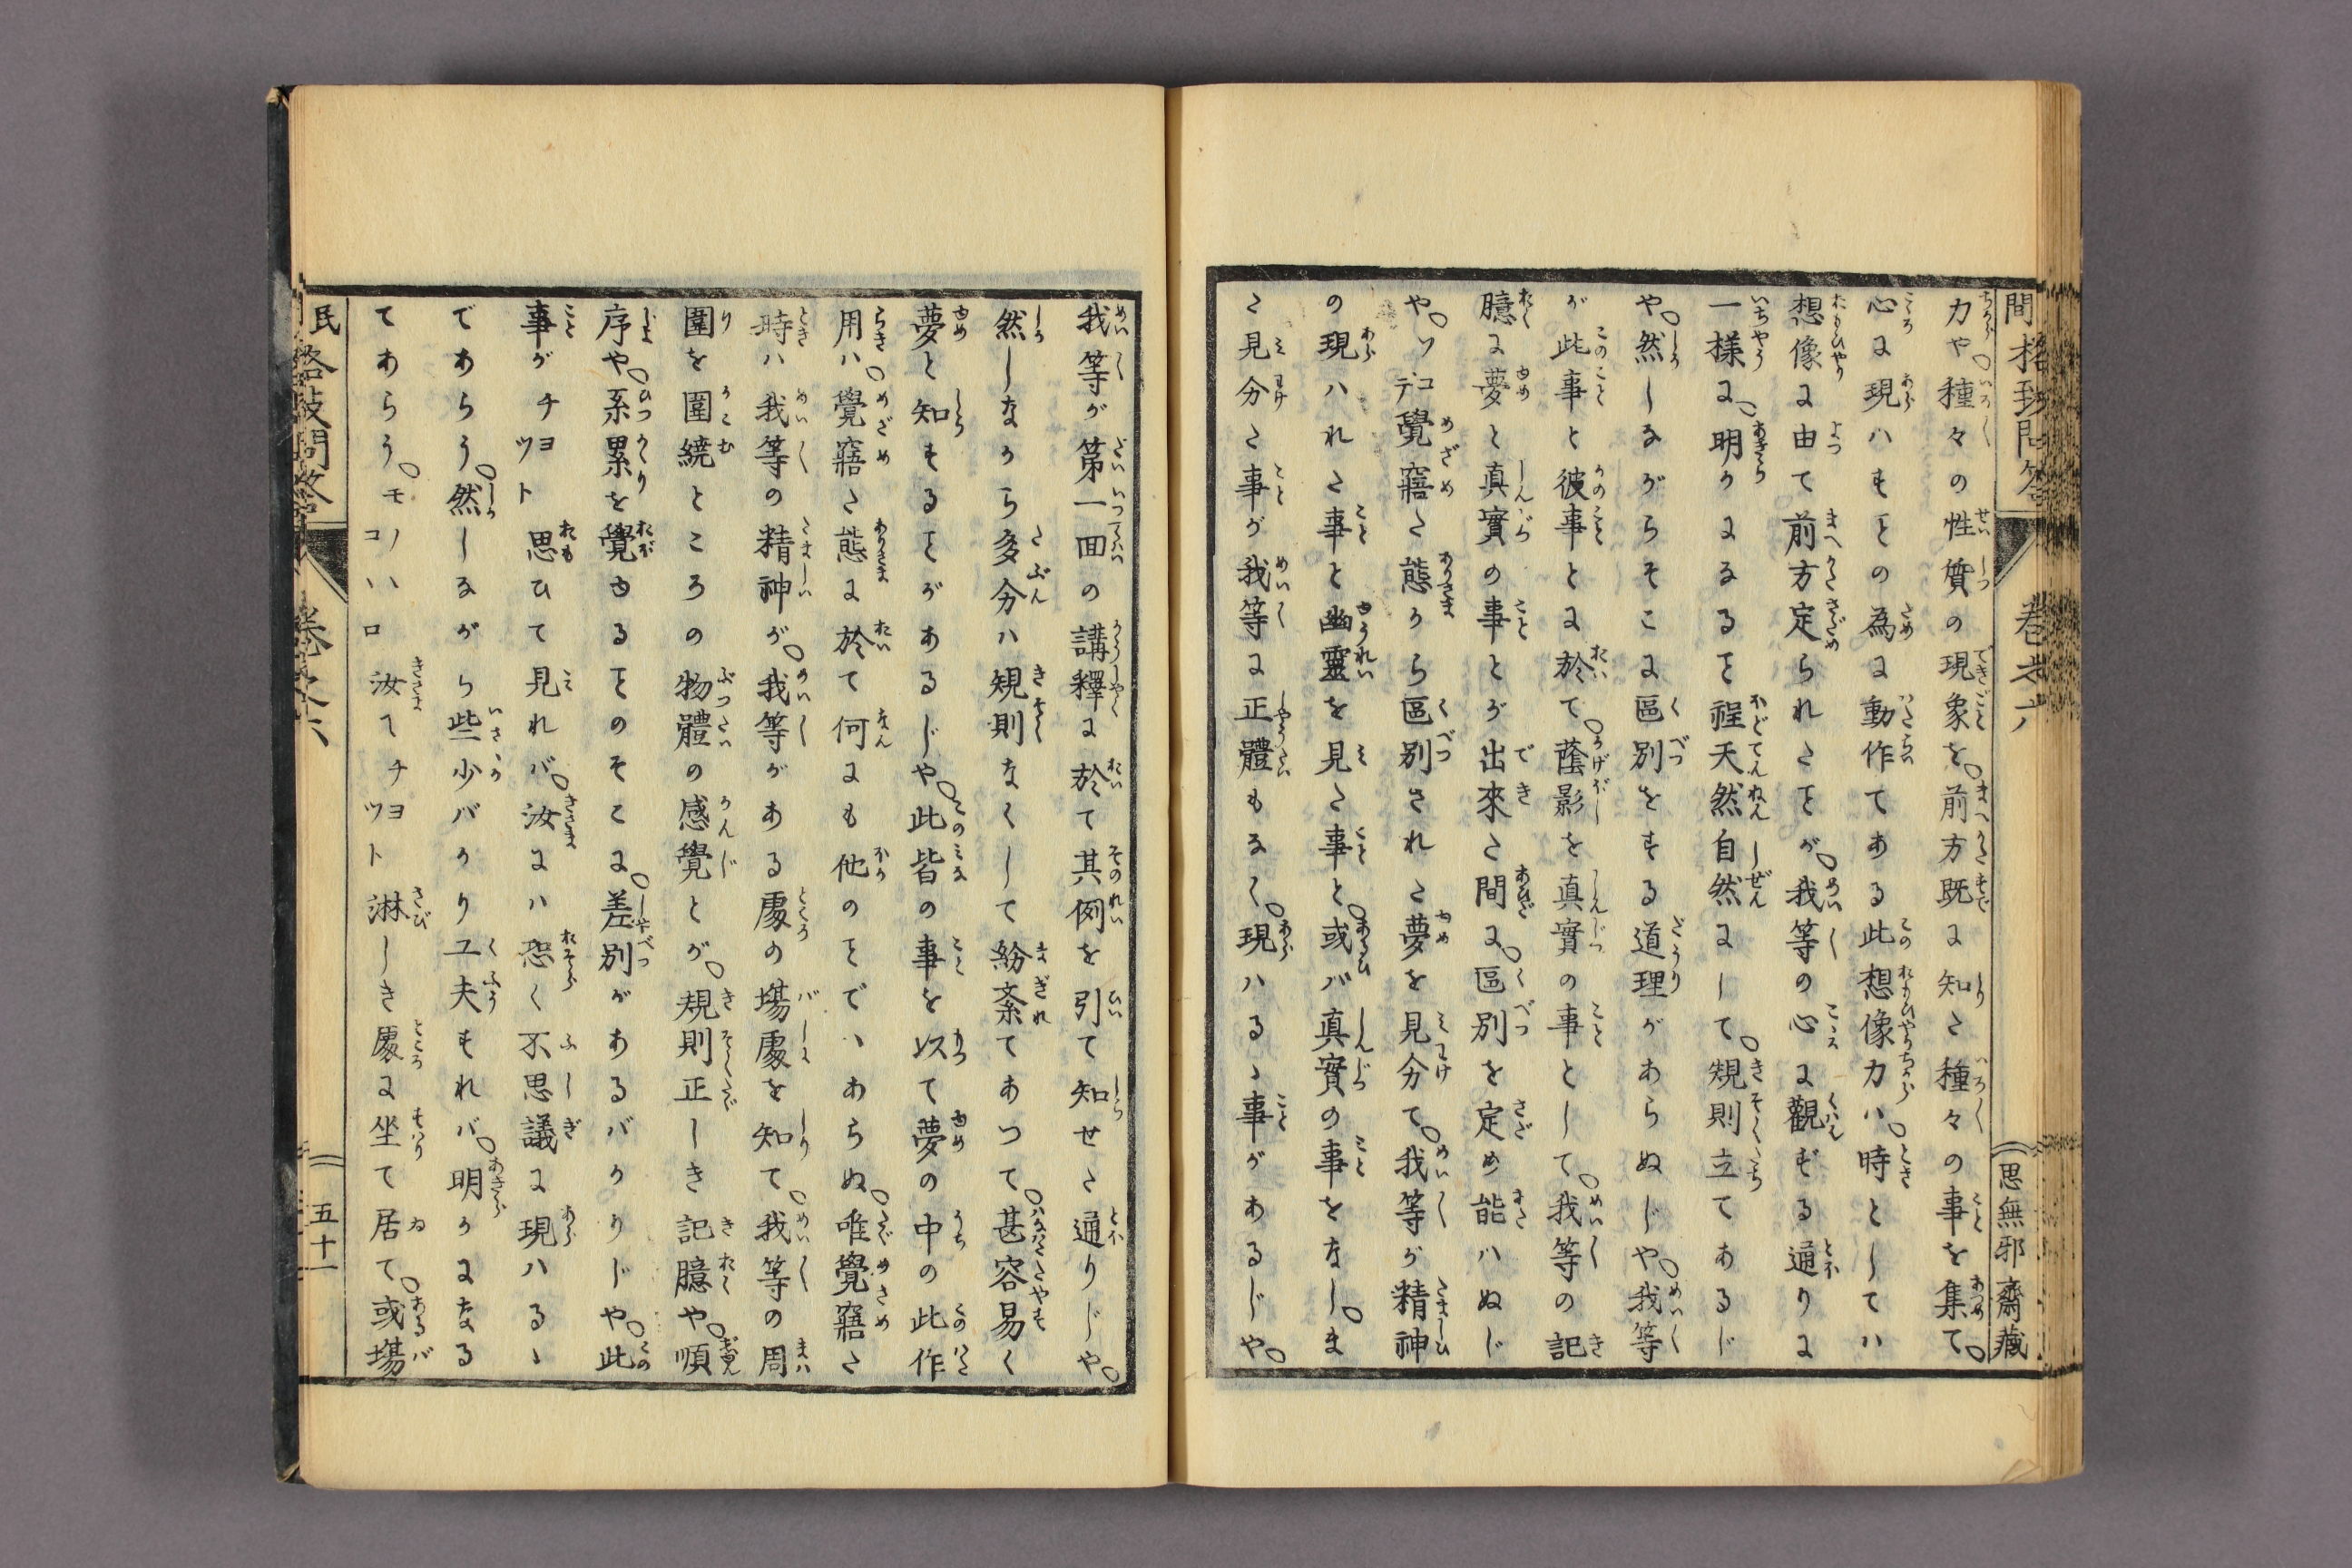 力や。種々の性質の現象を。前方既に知た種々の事を集て。
心に現ハすとの為に動作てある此想像力ハ。時としてハ
想像に由て前方定られたとが。我等の心に觀ずる通りに
一樣に。明かになると程天然自然にして。規則立てあるじ
や。然しながらそこに區別をする道理があらぬじや。我等
が此事と彼事とに於て。蔭影を真實の事として。我等の記
臆に夢と真實の事とが出來た間に。區別を定め能ハぬじ
や。ソコデ覺寤た態から區別された夢を見分て。我等が精神
の現ハれた事と幽靈を見た事と。或バ真實の事をなし。ま
た見分た事が我等に正體もなく。現ハるゝ事があるじや。
間格致問答
卷之六
思無邪齋藏
我等が第一回の講釋に於て其例を引て知せた通りじや。
然しながら多分ハ規則なくして紛紊てあつて。甚容易く
夢と知もるとがあるじや。此皆の事を以て夢の中の此作
用ハ。覺寤た態に於て何にも他のとでハあらぬ。唯覺寤た
時ハ我等の精神が。我等がある處の場處を知て。我等の周
圍を圍繞ところの物體の感覺とが。規則正しき記臆や。順
序や系累を覺ゆるとのそこに。差別があるバかりじや。此
事がチヨツト思ひて見れバ。汝にハ恐く不思議に現ハるゝ
であらう。然しながら些少バかり工夫すれバ。明かになる
てあらう。モノハコロ汝てチヨツト淋しき處に坐て居て。或場
民格致問答
卷之六
五十一